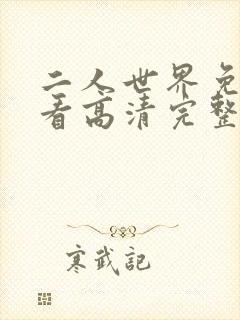 二人世界免
看高清完整
寒武記